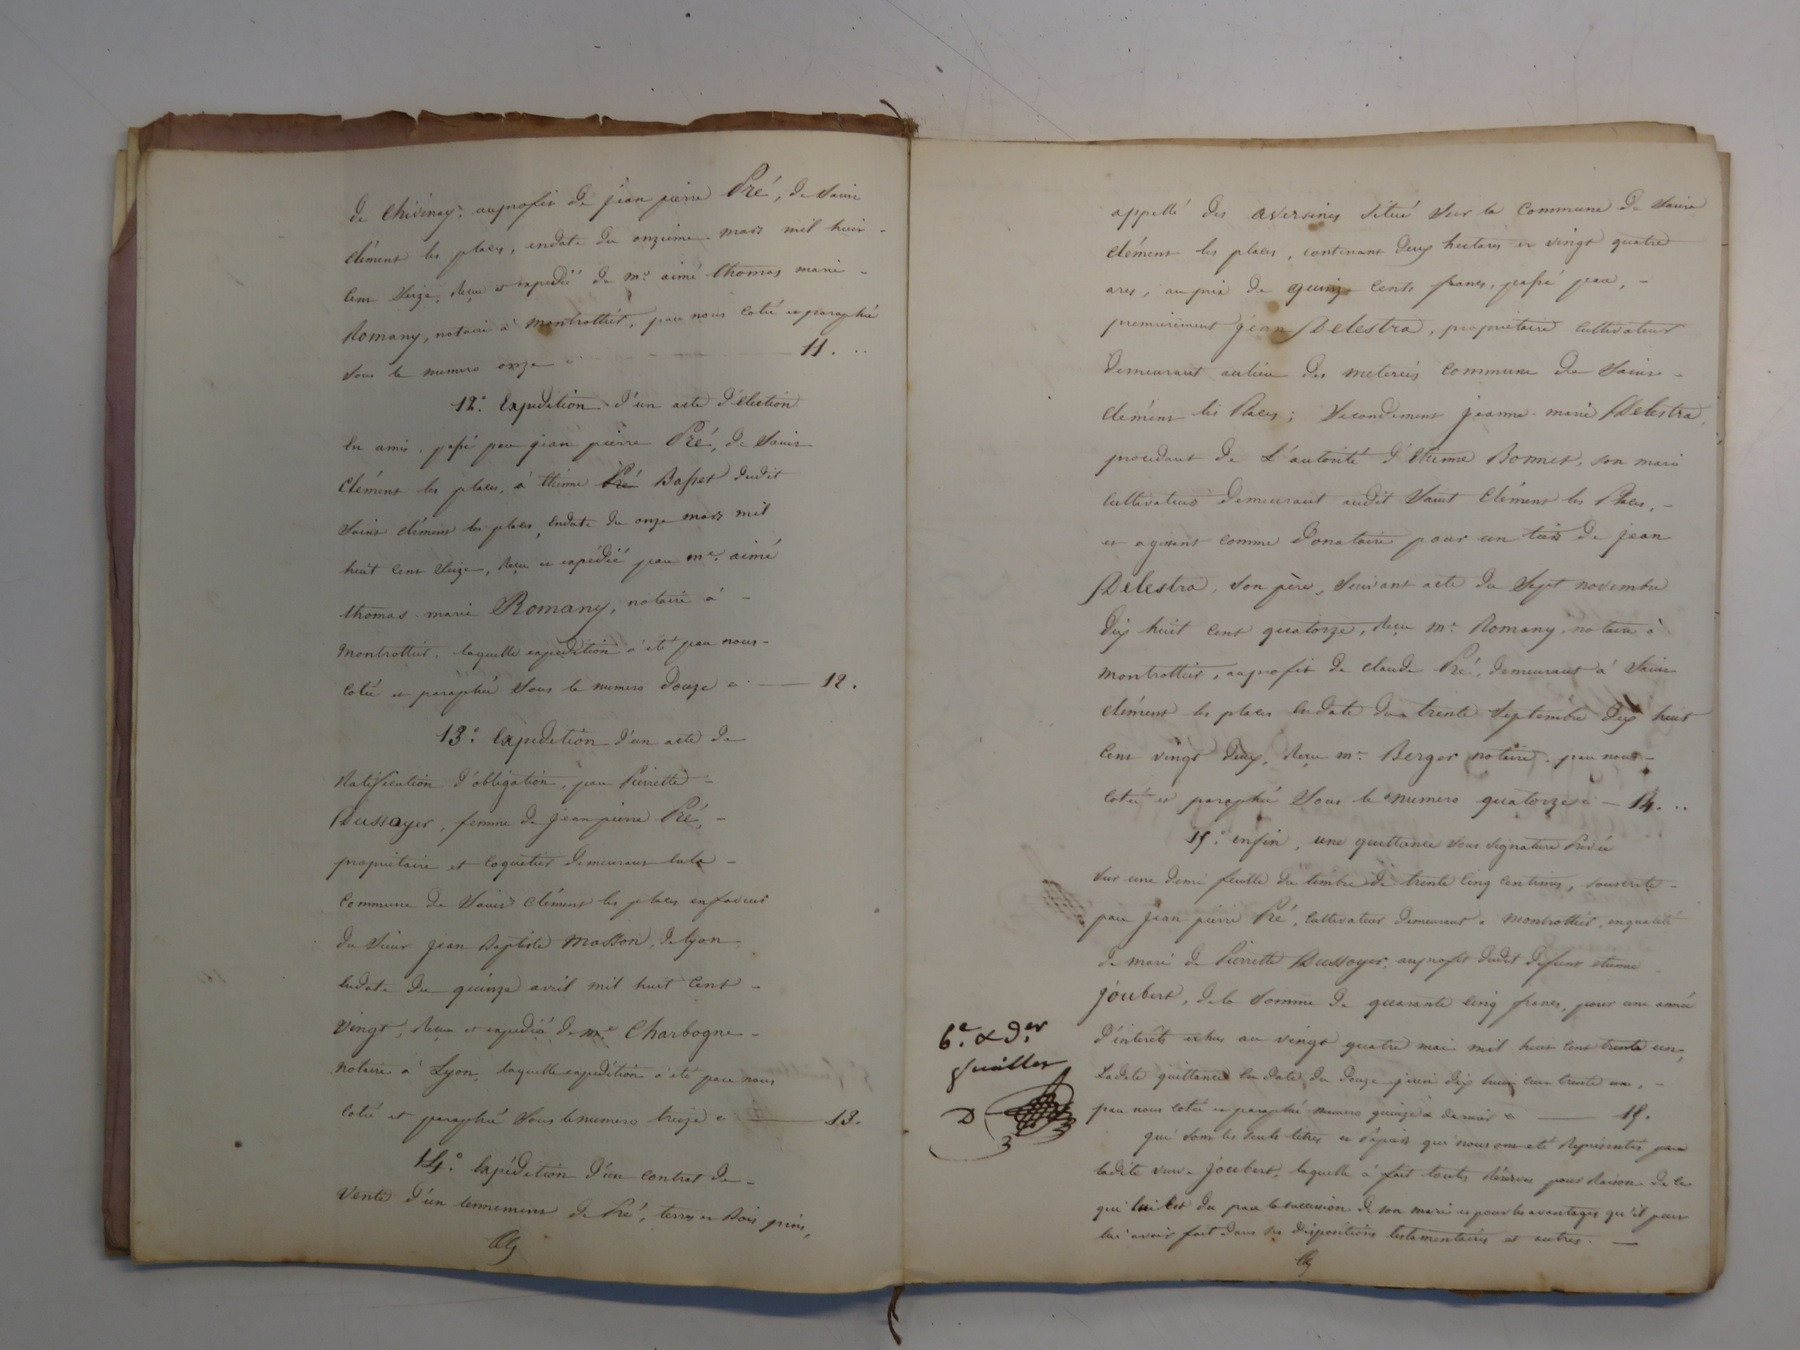 de Chivinay, auprofit de jean pierre Pré, de Saint
clément les places, endate du onzieme mars mil huit -
cent Seize, Reçu et expedié de me. aimé thomas marie -
Romany, notaire à montrottier, par nous coté et paraphé
Sous le numero onze 11.
12.° Expedition d'un acte d'élection
en amis. passé par jean pierre Pré, de Saint
Clément les places, à Etienne Pré Basset dudit
Saint clément les places, endate du onze mars mil
huit cent Seize, Reçu et expédié par me. aimé
thomas marie Romany, notaire à -
montrottier, laquelle expédition à été par nous -
coté et paraphée Sous le numero douze 12.
13.° Expedition d'un acte de
Ratification d'obligation, par Pierrette -
Dussoyer, femme de jean pierre Pré, -
propriétaire et coquetier demeurant en la -
Commune de Saint Clément les places enfaveur
du Sieur jean Baptiste Masson, de lyon
endate du quinze avril mil huit cent -
vingt, Reçu et expedié de me. Charbogne -
notaire à Lyon, laquelle expédition à été par nous
coté et paraphée Sous le numero treize 13.
14.° Expédition d'un contrat de -
vente d'un tennement de Pré, terres et Bois pinis,
appellé des aversines Situé Sur la commune de Saint
clément les places, contenant deux hectares et vingt quatre
ares, au prix de quinze cents francs, passé par, -
premierement jean Delestra, propriétaire cultivateur
demeurant au lieu des metereis commune de Saint -
clément les Places; Secondement jeanne-marie Delestra,
procedant de L'autorité d'étienne Bonnet, son mari
cultivateurs demeurant audit Saint Clément les Places, -
et agissant comme Donataire pour un tiers de jean
Delestra, Son père, Suivant acte du Sept novembre
dix huit cent quatorze, Reçu me. Romany, notaire à
montrottier, auprofit de claude Pré, demeurant à Saint
clément les places endate du trente Septembre dix huit
cent vingt deux, Reçu me. Berger notaire, par nous -
coté et paraphé Sous le numero quatorze 14.
15.° enfin, une quittance Sous Signature Privée
Sur une demi feuille du timbre de trente cinq centimes, souscrite -
par jean pierre Pré, cultivateur demeurant à montrottier, enqualité
de mari de Pierrette Dussoyer, auprofit dudit defunt étienne
joubert, de la Somme de quarante cinq francs, pour une année
d'interêts échus au vingt quatre mai mil huit cent trente un,
Ladite quittance en date du douze juin dix huit cent trente un, -
par nous coté et paraphé numero quinze et dernier 15.
qui sont les Seuls titres et papiers qui nous ont été Représentés par
ladite veuve joubert, laquelle à fait toutes Réserves pour Raison de ce
qui lui est du par la succession de son mari et pour les avantages qu'il peut
lui avoir fait dans ses dispositions testamentaires et autres. -
6.e & d.er
feuillet